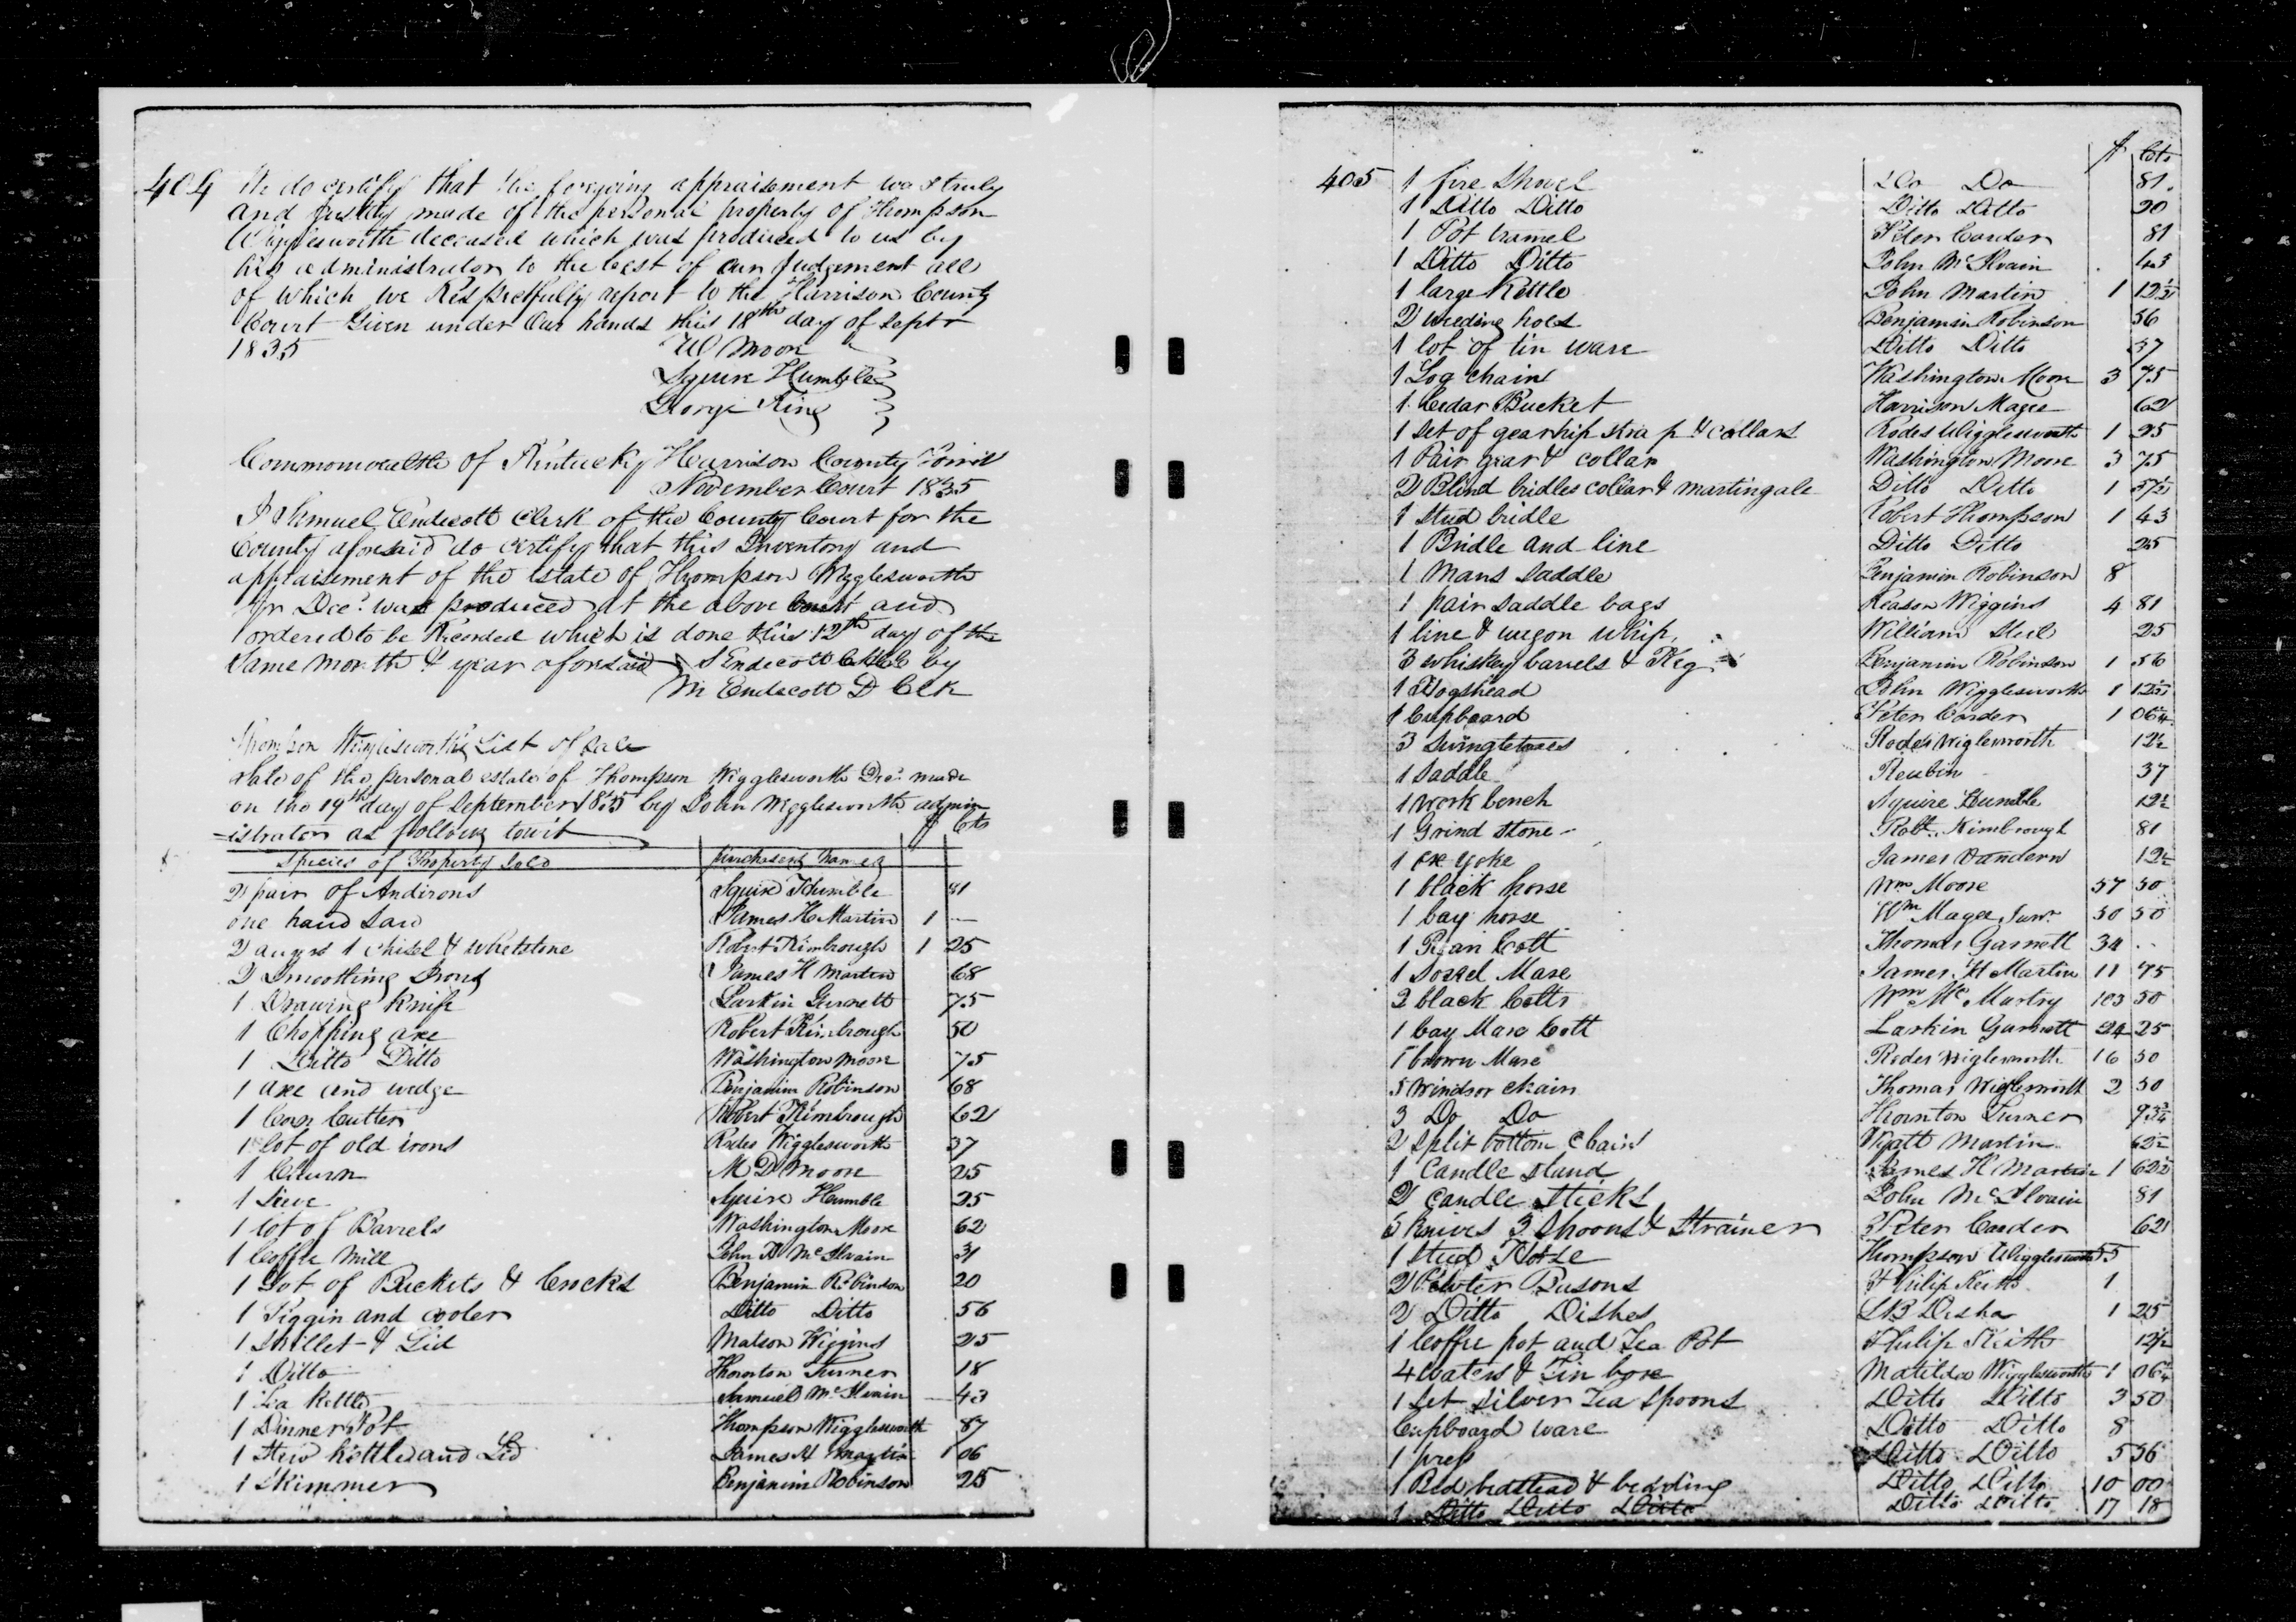 404 We do certify that the forgoing appraisement was truly
and justly made of the personal property of Thompson
Wigglesworth deceased which was produced to us by
his administrator to the best of our Judgement all
of which we Respectfully report to the Harrison County
Court Given under Our hands this 18th day of Septr
1835 W Moore
Squire Humble
George King
Commonwealth of Kentucky Harrison County
November Court 1835
I Samuel Endecott Clerk of the County Court for the
County aforesaid do certify that this Inventory and
appraisement of the estate of Thompson Wigglesworth
Jr Decd was produced at the above Court and
ordered to be Recorded which is done this 12th day of the
same month & year aforesaid S Endecott by
M Endecott D Clk
Thompson Wigglesworths List of Sale
Sale of the personal estate of Thompson Wigglesworth Decd made
on the 19th day of September 1835 by John Wigglesworth admin
istrator as follows towit $ Cts
Species of Property Sold purchasers names
2 pair of Andirons Squire Humble 81
one hand saw James H Martin 1 —
2 augers 1 chisel & whetstone Robert Kimbrough 1 25
2 Smoothing Irons James H Martin 68
1 Drawing Knife Larkin Garnett 75
1 Chopping axe Robert Kimbrough 50
1 Ditto Ditto Washington Moore 75
1 axe and wedge Benjamin Robinson 68
1 Corn Cutter Robert Kimbrough 62
1 lot of old irons Rodes Wigglesworth 37
1 Churn M D Moore 25
1 Sieve Squire Humble 25
1 lot of Barrels Washington Moore 62
1 Coffee Mill John McIlvain 31
1 Lot of Buckets & Crocks Benjamin Robinson 20
1 Piggin and cooler Ditto Ditto 56
1 Skillet & Lid Matson Wiggins 25
1 Ditto Thornton Turner 18
1 Tea Kettle Samuel McIlvain 43
1 Dinner Pot Thompson Wigglesworth 87
1 Stew Kettle and Lid James H Martin 1 06
1 Skimmer Benjamin Robinson 25
$ Cts
405 1 fire Shovel Do Do 81
1 Ditto Ditto Ditto Ditto 20
1 Pot tramel Peter Carder 81
1 Ditto Ditto John McIlvain 43
1 large Kettle John Martin 1 12½
2 weeding hoes Benjamin Robinson 56
1 lot of tin ware Ditto Ditto 37
1 Log chain Washington Moore 3 75
1 Cedar Bucket Harrison Magee 62
1 set of gear hip strap & collars Rodes Wigglesworth 1 25
1 Pair gear & collar Washington Moore 3 75
2 Blind bridles collar & martingale Ditto Ditto 1 37½
1 stud bridle Robert Thompson 1 43
1 Bridle and line Ditto Ditto 25
1 Mans saddle Benjamin Robinson 8
1 pair saddle bags Reason Wiggins 4 81
1 line & wagon whip William Steel 25
3 whiskey barrels & Keg Benjamin Robinson 1 56
1 Hogshead John Wigglesworth 1 12½
1 Cupboard Peter Carder 1 06¼
3 Swingletrees Rodes Wiglesworth 12½
1 Saddle Reubin 37
1 work bench Squire Humble 12½
1 Grind stone Robt Kimbrough 81
1 ox yoke James Vandern 12½
1 black horse Wm Moore 57 50
1 bay horse Wm Magee Junr 30 50
1 Roan Colt Thomas Garnett 34 ..
1 Sorrel Mare James H Martin 11 75
2 black Colts Wm Mc Murtry 103 50
1 bay Mare Colt Larkin Garnett 24 25
1 brown Mare Rodes Wiglesworth 16 50
5 Windsor chairs Thomas Wiglesworth 2 50
3 Do Do Thornton Turner 93¾
2 split bottom chairs Wyatt Martin 62½
1 Candle stand James H Martin 1 62½
2 candle sticks John McIlvain 81
5 Knives 3 Spoons & Strainer Peter Carder 62
1 Stud Horse Thompson Wigglesworth 55
2 Pewter Basons Philip Keith 1
2 Ditto Dishes L B Desha 1 25
1 Coffee pot and Tea Pot Philip Keith 12½
4 waters & Tin box Matilda Wigglesworth 1 06¼
1 Set Silver Tea Spoons Ditto Ditto 3 50
Cupboard ware Ditto Ditto 8
1 press Ditto Ditto 5 56
1 Bed bedstead & bedding Ditto Ditto 10 00
1 Ditto Ditto Ditto Ditto Ditto 17 18